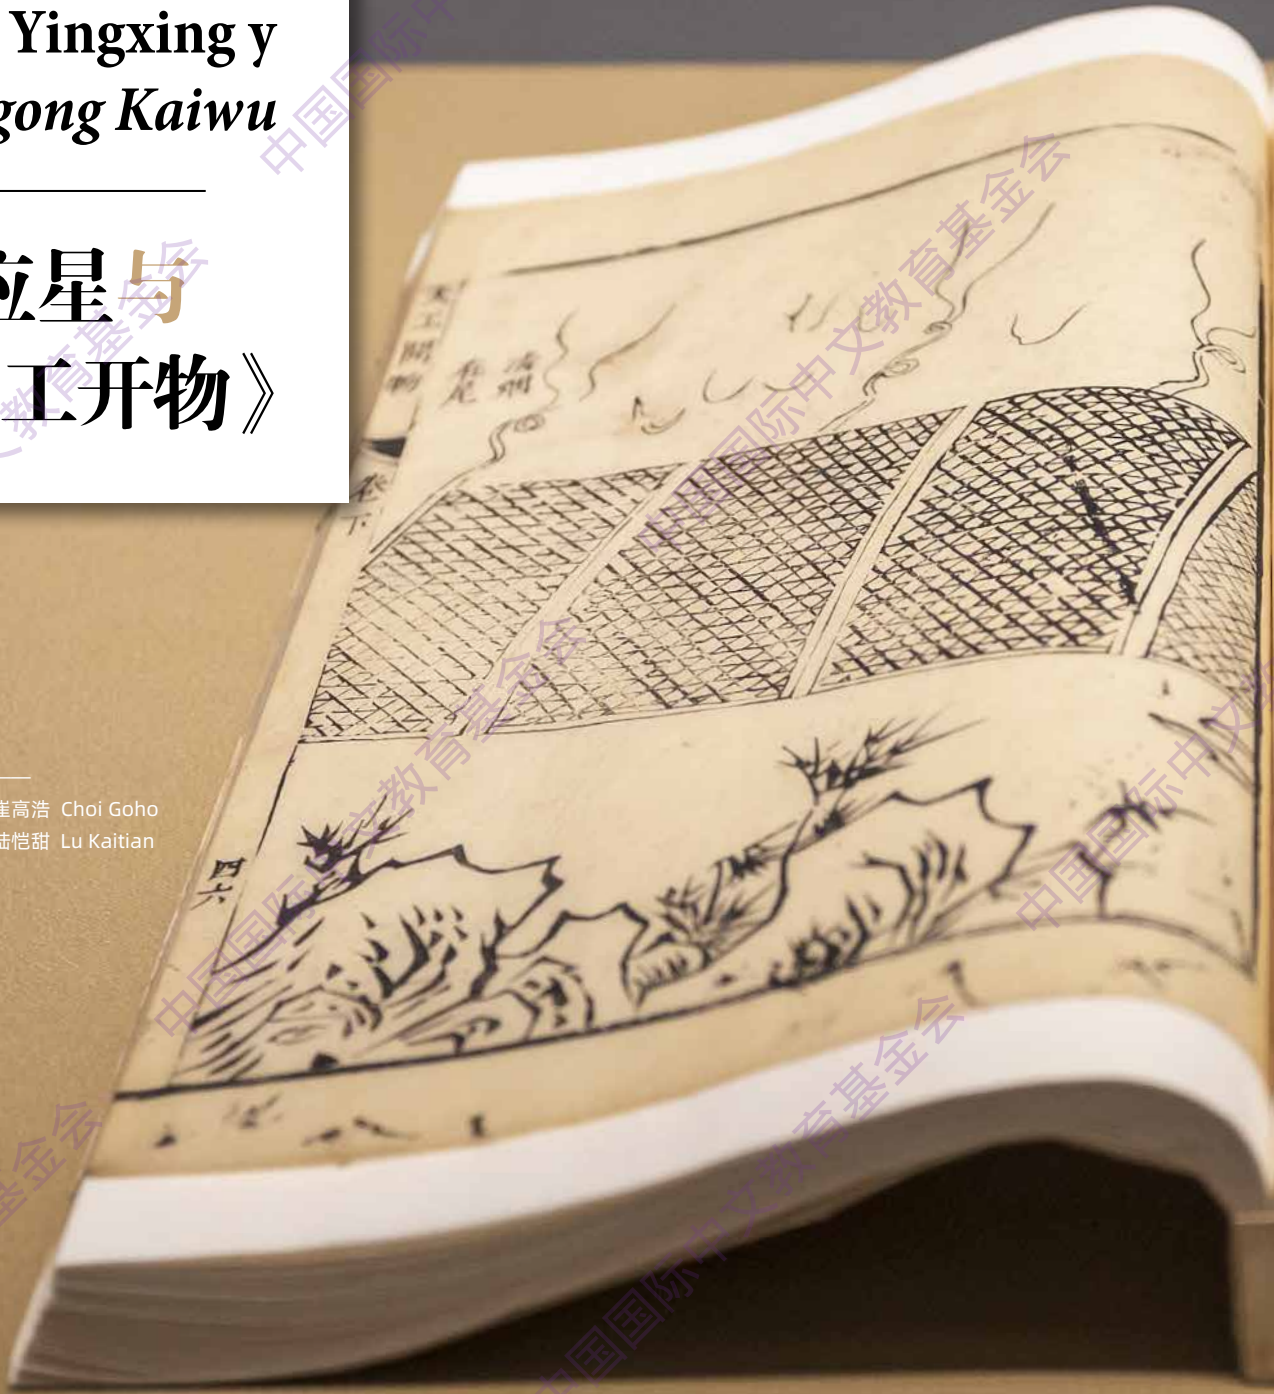 Yingxing y
gong Kaiwu
应星与
工开物》
崔高浩 Choi Goho
陆恺甜 Lu Kaitian
天工開物
卷下
四六
中国国际中文教育基金会